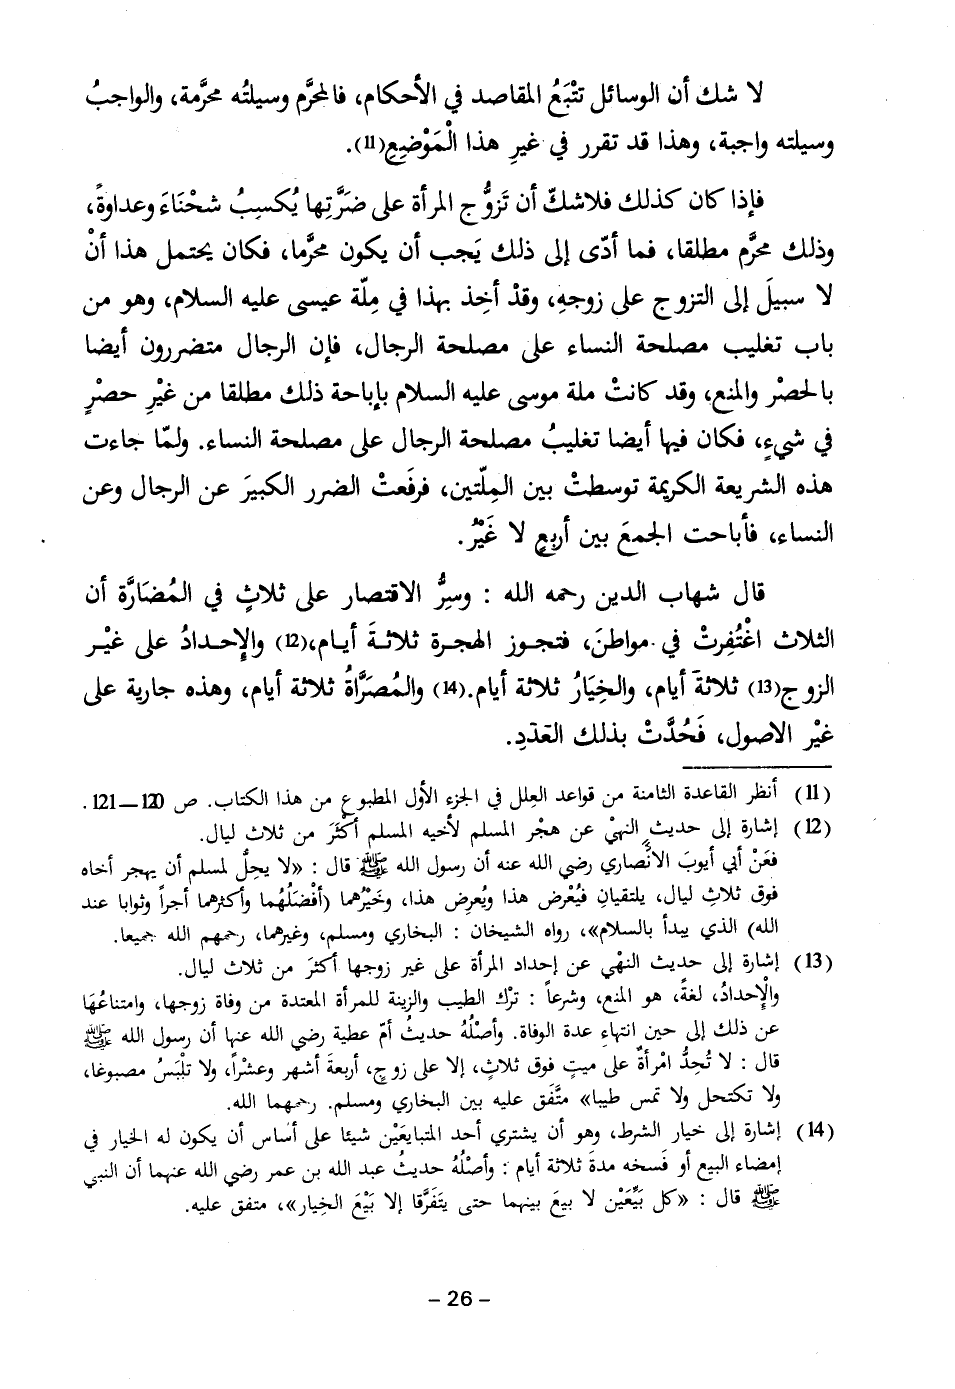 لا شك أن الوسائل تتْبَعُ المقاصد في الأحكام، فالمحرَّم وسيلتُه محرَّمة، والواجبُ
وسيلته واجبة، وهذا قد تقرر في غيرِ هذا الْمَوْضِيع(11).
فإذا كان كذلك فلاشكّ أن تَزوُّج المرأة على ضَرَّتِها يُكسِبُ شحْنَاءَ وعداوةً،
وذلك محرَّم مطلقا، فما أدّى إلى ذلك يَجب أن يكون محرَّما، فكان يحتمل هذا أنْ
لا سبيلَ إلى التزوج على زوجهِ، وقدْ أخِذ بهذا في مِلّة عيسى عليه السلام، وهو من
باب تغليب مصلحة النساء على مصلحة الرجال، فإن الرجال متضررون أيضا
بالحصْر والمنع، وقد كانتْ ملة موسى عليه السلام بإباحة ذلك مطلقا من غيْرِ حصْرٍ
في شيءٍ، فكان فيها أيضا تغليبُ مصلحة الرجال على مصلحة النساء. ولمّا جاءت
هذه الشريعة الكريمة توسطتْ بين المِلّتين، فرفَعتْ الضرر الكبيرَ عن الرجال وعن
النساء، فأباحت الجمعَ بين أربعٍ لا غَيْرُ.
قال شهاب الدين رحمه الله : وسِرُّ الاقتصار على ثلاثٍ في المُضَارَّة أن
الثلاث اغْتُفِرتْ في مواطنَ، فتجوز الهجرة ثلاثةَ أيام،(12) والإحدادُ على غيْر
الزوج(13) ثلاثةَ أيام، والخِيَارُ ثلاثة أيام.(14) والمُصَرَّاةُ ثلاثة أيام، وهذه جارية على
غيْر الاصول، فَحُدَّتْ بذلك العَدَدِ.
(11) أنظر القاعدة الثامنة من قواعد العِلل في الجزء الأول المطبوع من هذا الكتاب. ص 120—121.
(12) إشارة إلى حديث النهيْ عن هجْر المسلم لأخيه المسلم أكثَرَ من ثلاث ليال.
فعَنْ أبي أيوبَ الأنْصاري رضي الله عنه أن رسول الله ﷺ قال : «لا يحِلُّ لمسلم أن يهجر أخاه
فوق ثلاثِ ليال، يلتقيانِ فيُعْرض هذا ويُعرِض هذا، وخَيْرُهما (أفْضَلُهُما وأكثرهما أجراً وثوابا عند
الله) الذي يبدأ بالسلام»، رواه الشيخان : البخاري ومسلم، وغيرهما، رحمهم الله جميعا.
(13) إشارة إلى حديث النهْي عن إحداد المرأة على غير زوجها أكثرَ من ثلاث ليال.
والْإحدادُ، لغةً، هو المنع، وشرعاً : ترْك الطيب والزينة للمرأة المعتدة من وفاة زوجها، وامتناعُهَا
عن ذلك إلى حين انتهاءِ عدة الوفاة. وأصْلُهُ حديثُ أمّ عطية رضي الله عنها أن رسول الله ﷺ
قال : لا تُحِدُّ امْرأةٌ على ميتٍ فوق ثلاثٍ، إلا على زوجٍ، أربعةَ أشهر وعشْراً، ولا تلْبَسُ مصبوغا،
ولا تكتحل ولا تمس طيبا» متَّفَق عليه بين البخاري ومسلم. رحمهما الله.
(14) إشارة إلى خيار الشرط، وهو أن يشتري أحد المتبايعَيْن شيئا على أساس أن يكون له الخيار في
إمضاء البيع أو فَسخه مدةَ ثلاثة أيام : وأصْلُهُ حديثُ عبد الله بن عمر رضي الله عنهما أن النبي
ﷺ قال : «كل بَيِّعَيْن لا بيعَ بينهما حتى يتَفَرَّقا إلا بَيْعَ الخِيار»، متفق عليه.
- 26 -